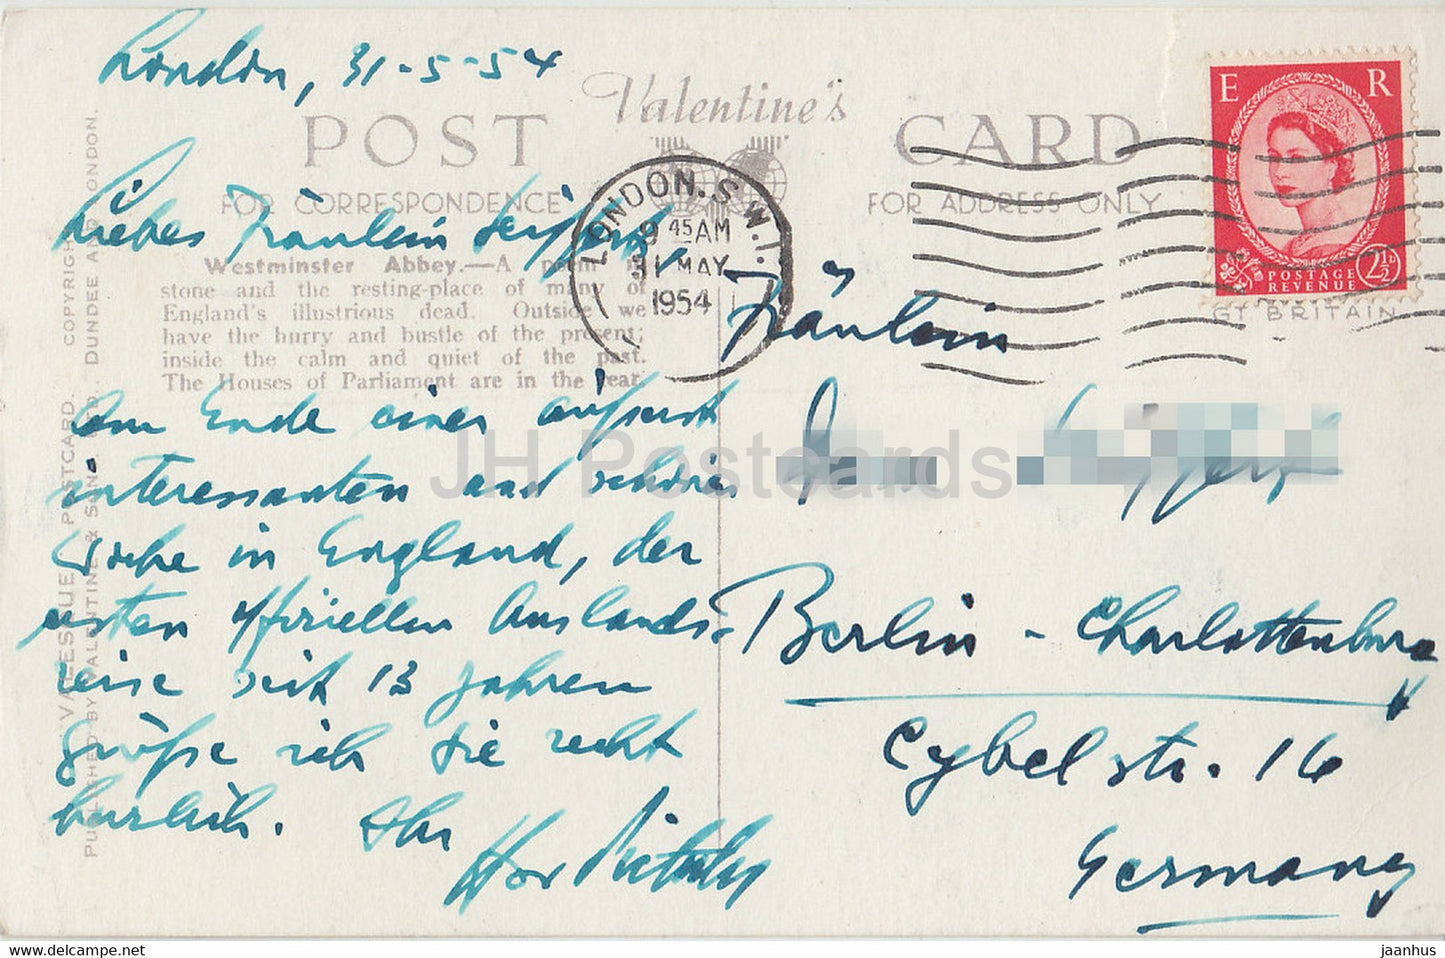 London, 31-5-54
Valentine's
POST CARD
FOR CORRESPONDENCE
FOR ADDRESS ONLY
Liebes Fräulein
Westminster Abbey.—A poem in
stone and the resting-place of many of
England's illustrious dead. Outside we
have the hurry and bustle of the present;
inside the calm and quiet of the past.
The Houses of Parliament are in the rear.
Am Ende einer äußerst
interessanten und schönen
Woche in England, der
ersten offiziellen Auslands-
reise seit 13 Jahren
grüße ich Sie recht
herzlich. Ihr
LONDON. S.W.1.
9 45 AM
31 MAY
1954
E R
POSTAGE
REVENUE
2½D
GT BRITAIN
Fräulein
Berlin - Charlottenburg
Cybelstr. 16
Germany
VALESQUE POSTCARD. COPYRIGHT
PUBLISHED BY VALENTINE & SONS, LTD., DUNDEE AND LONDON.
JH Postcards
www.delcampe.net
jaanhus